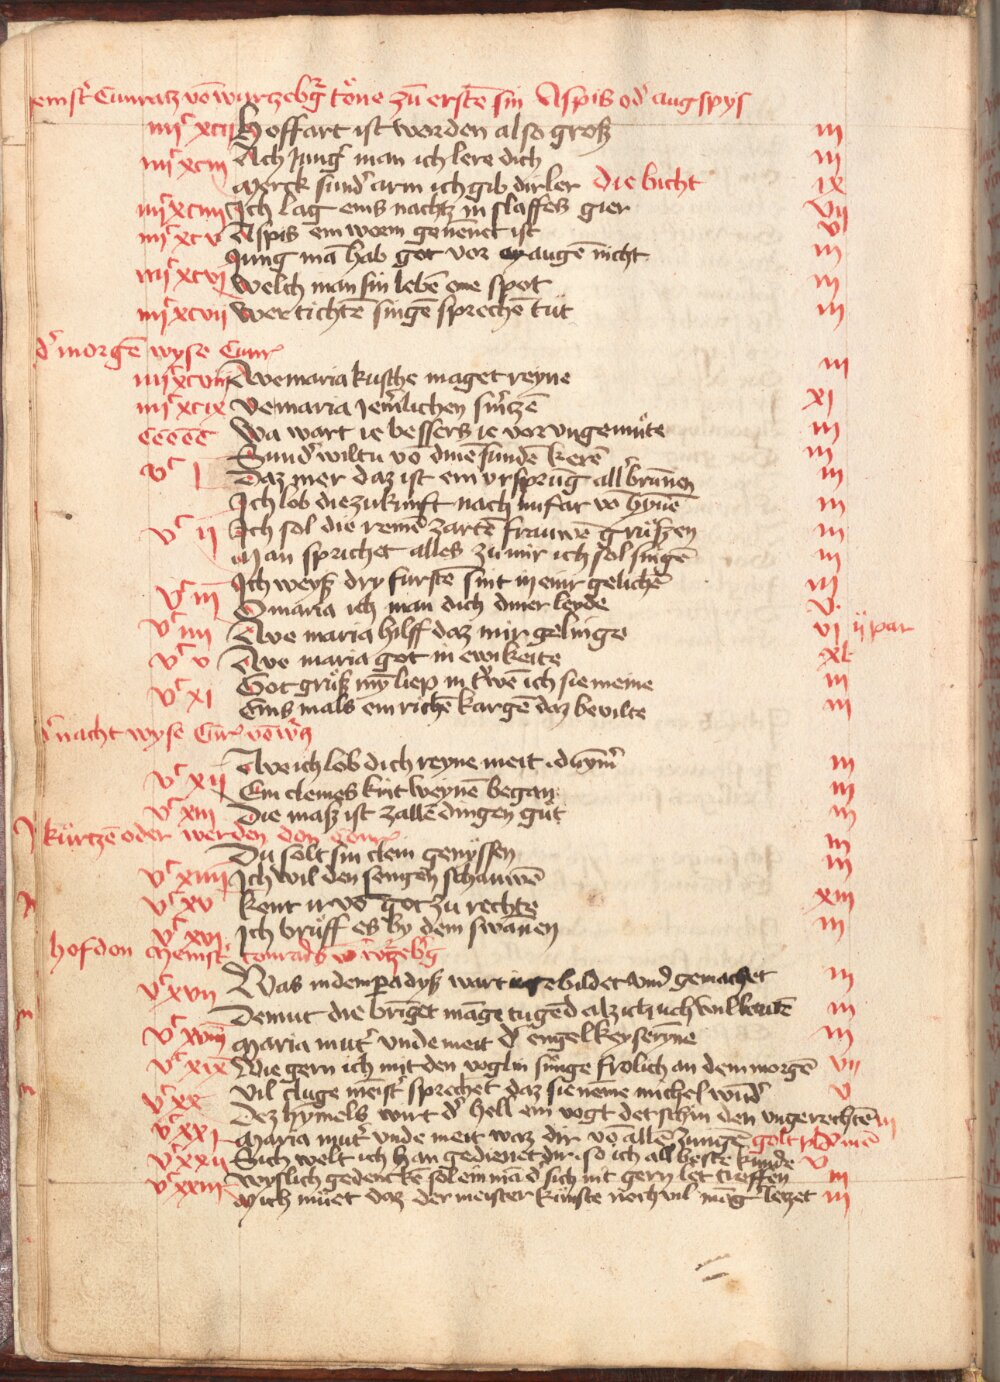 emstˀ Cunratz võ wurtzebg᷎ töne zů erstẽ sin Aspis odˀ augspys
iiijᶜ xcij Hoffart ist worden also groß iij
iiijᶜ xciij Ach Jungˀ man ich lere dich iij
Merck sundˀ arm ich gib dir ler die bicht ix
iiijᶜ xciiij Ich lag eins nachtz in slaffes gier vij
iiijᶜ xcv Aspis ein worm genẽnet ist v
Jung mã hab got vor augẽ nicht iij
iiijᶜ xcvj Welch man sin lebẽ one spot iij
iiijᶜ xcvij Wer tichtẽ singẽ sprechẽ tůt iij
dˀ morgẽ wyse Cunrˀ
iiijᶜ xcviij Ave maria kusche maget reyne iij
iiijᶜ xcix Ve maria Jemˀlichen smˀtzẽ xj
Wa wart ie bessers ie vor ungemůte iij
Sundˀ wiltu võ dinẽ sundẽ kerẽ iij
vᶜ j Daz mer daz ist ein ursprũg allˀ brũnen iij
Ich lob die zukunft nach hinfar võ hynẽ iij
vᶜ ij Ich sol die reinẽ zartẽ frauwẽ grußen iij
Man sprichet alles zů mir ich sol singẽ iij
Ich weyß dry furstẽ sint in einr gelichẽ iij
vᶜ iij O maria ich man dich diner leyde v
vᶜ iiij Ave maria hilff daz mir gelinge vj ij par
vᶜ v Ave maria got in ewikeite xl
vᶜ xj Got grüß myn liep in trˀwẽ ich sie meine iij
Eins mals ein richẽ kargẽ daz bevilte iij
rˀ nacht wyse Cunˀ võ wˀtz
Ave ich lob dich reyne meit iij
vᶜ xij Ein cleines kint weynẽ began iij
vᶜ xiij Die maß ist zallẽ dingen gůt iij
kürtzẽ oder werden don Conrˀ
Du solt sin clein genyssen iij
vᶜ xiiij Ich wil den sengen schauwẽ iij
vᶜ xv kent ir võ got zu rechte xiij
vᶜ xvj Ich brüff es by dem swanen iij
hofdon Meinstˀ Conrads võ wˀtzebˀg
vᶜ xvij Was in dem padyß wart gebildet undˀ gemachet iij
Demut die bringet mãge tugẽd als ich uch wil beutẽ iij
vᶜ xviij Maria mutˀ unde meit dˀ engel keyserynne iij
vᶜ xix Wie gern ich mit den voglin singe frolich an dem morgẽ vij
vᶜ xx Vil cluge meistˀ sprechet daz sie neme michel wũdˀ v
Dez hymels wirt dˀ hell ein vogt det schin den ungerechtẽ iij
vᶜ xxj Maria mutˀ unde meit waz dir võ allẽ zungẽ
vᶜ xxij Sich welt ich han gedienet dir so ich all beste kunde v
Wyslich gedenckẽ sol ein mã dˀ sich nit gern let treffen iij
vᶜ xxiij Mich müet daz der meister künste noch vil mãg letzet iij